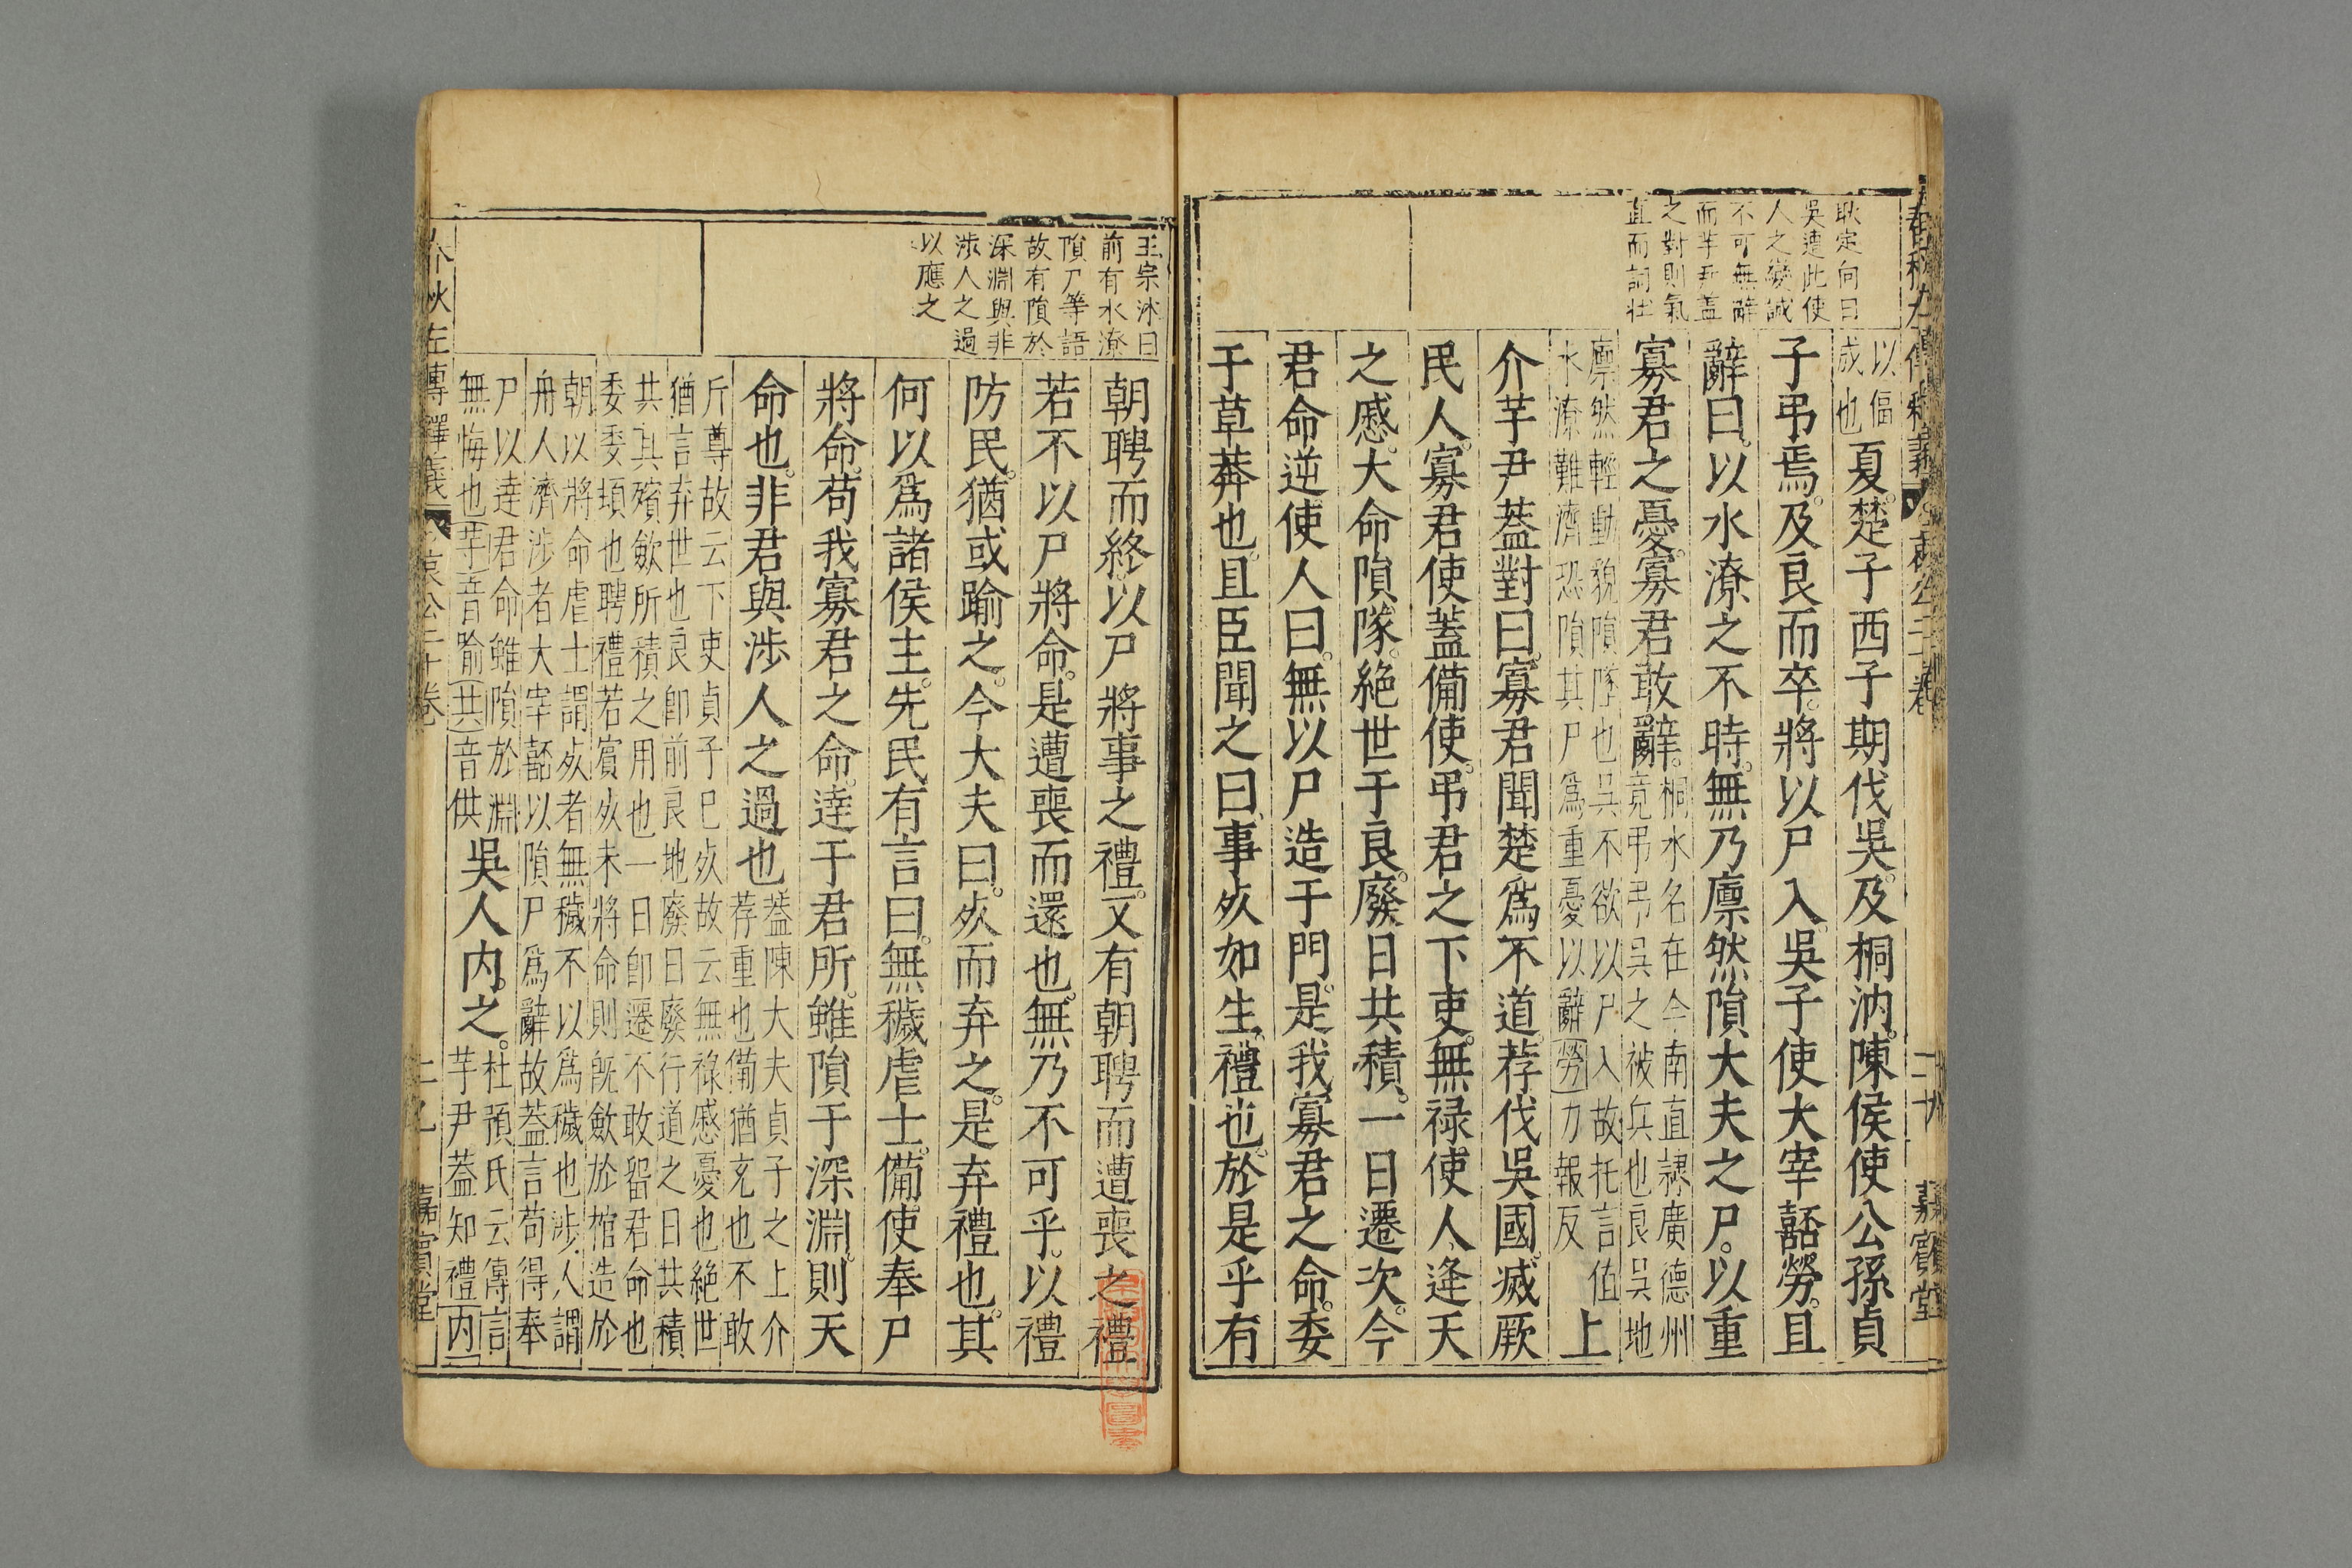 耿定向曰
吳遭此使
人之變誠
不可無辭
而芋尹蓋
之對則氣
直而詞壯
以偪
成也
夏。楚子西子期伐吳。及桐汭。陳侯使公孫貞
子弔焉。及良而卒。將以尸入。吳子使大宰嚭勞。且
辭曰。以水潦之不時。無乃廪然隕大夫之尸。以重
寡君之憂。寡君敢辭。
桐水名在今南直隷廣德州
竟弔弔吳之被兵也良吳地
廪然輕動貌隕墜也吳不欲以尸入故托言值
水潦難濟恐隕其尸爲重憂以辭勞力報反
上
介芋尹蓋對曰。寡君聞楚爲不道。荐伐吳國。滅厥
民人。寡君使蓋備使。弔君之下吏。無禄。使人逢天
之慼。大命隕隊。絶世于良。廢日共積。一日遷次。今
君命逆使人曰。無以尸造于門。是我寡君之命。委
于草莽也。且臣聞之曰。事死如生。禮也。於是乎有
王宗沐曰
前有水潦
隕尸等語
故有隕於
深淵與非
涉人之過
以應之
朝聘而終。以尸將事之禮。又有朝聘而遭喪之禮
若不以尸將命。是遭喪而還也。無乃不可乎。以禮
防民。猶或踰之。今大夫曰。死而弃之。是弃禮也。其
何以爲諸侯主。先民有言曰。無穢虐士。備使奉尸
將命。苟我寡君之命。逹于君所。雖隕于深淵。則天
命也。非君與涉人之過也
蓋陳大夫貞子之上介
荐重也備猶充也不敢
斥尊故云下吏貞子已死故云無禄慼憂也絶世
猶言弃世也良卽前良地廢日廢行道之日共積
共其殯歛所積之用也一日卽遷不敢留君命也
委委頓也聘禮若賓死未將命則旣歛於棺造於
朝以將命虐士謂死者無穢不以爲穢也涉人謂
舟人濟涉者大宰嚭以隕尸爲辭故蓋言苟得奉
尸以逹君命雖隕於淵
無悔也芋音踰共音供
吳人内之。
杜預氏云傳言
芋尹蓋知禮内